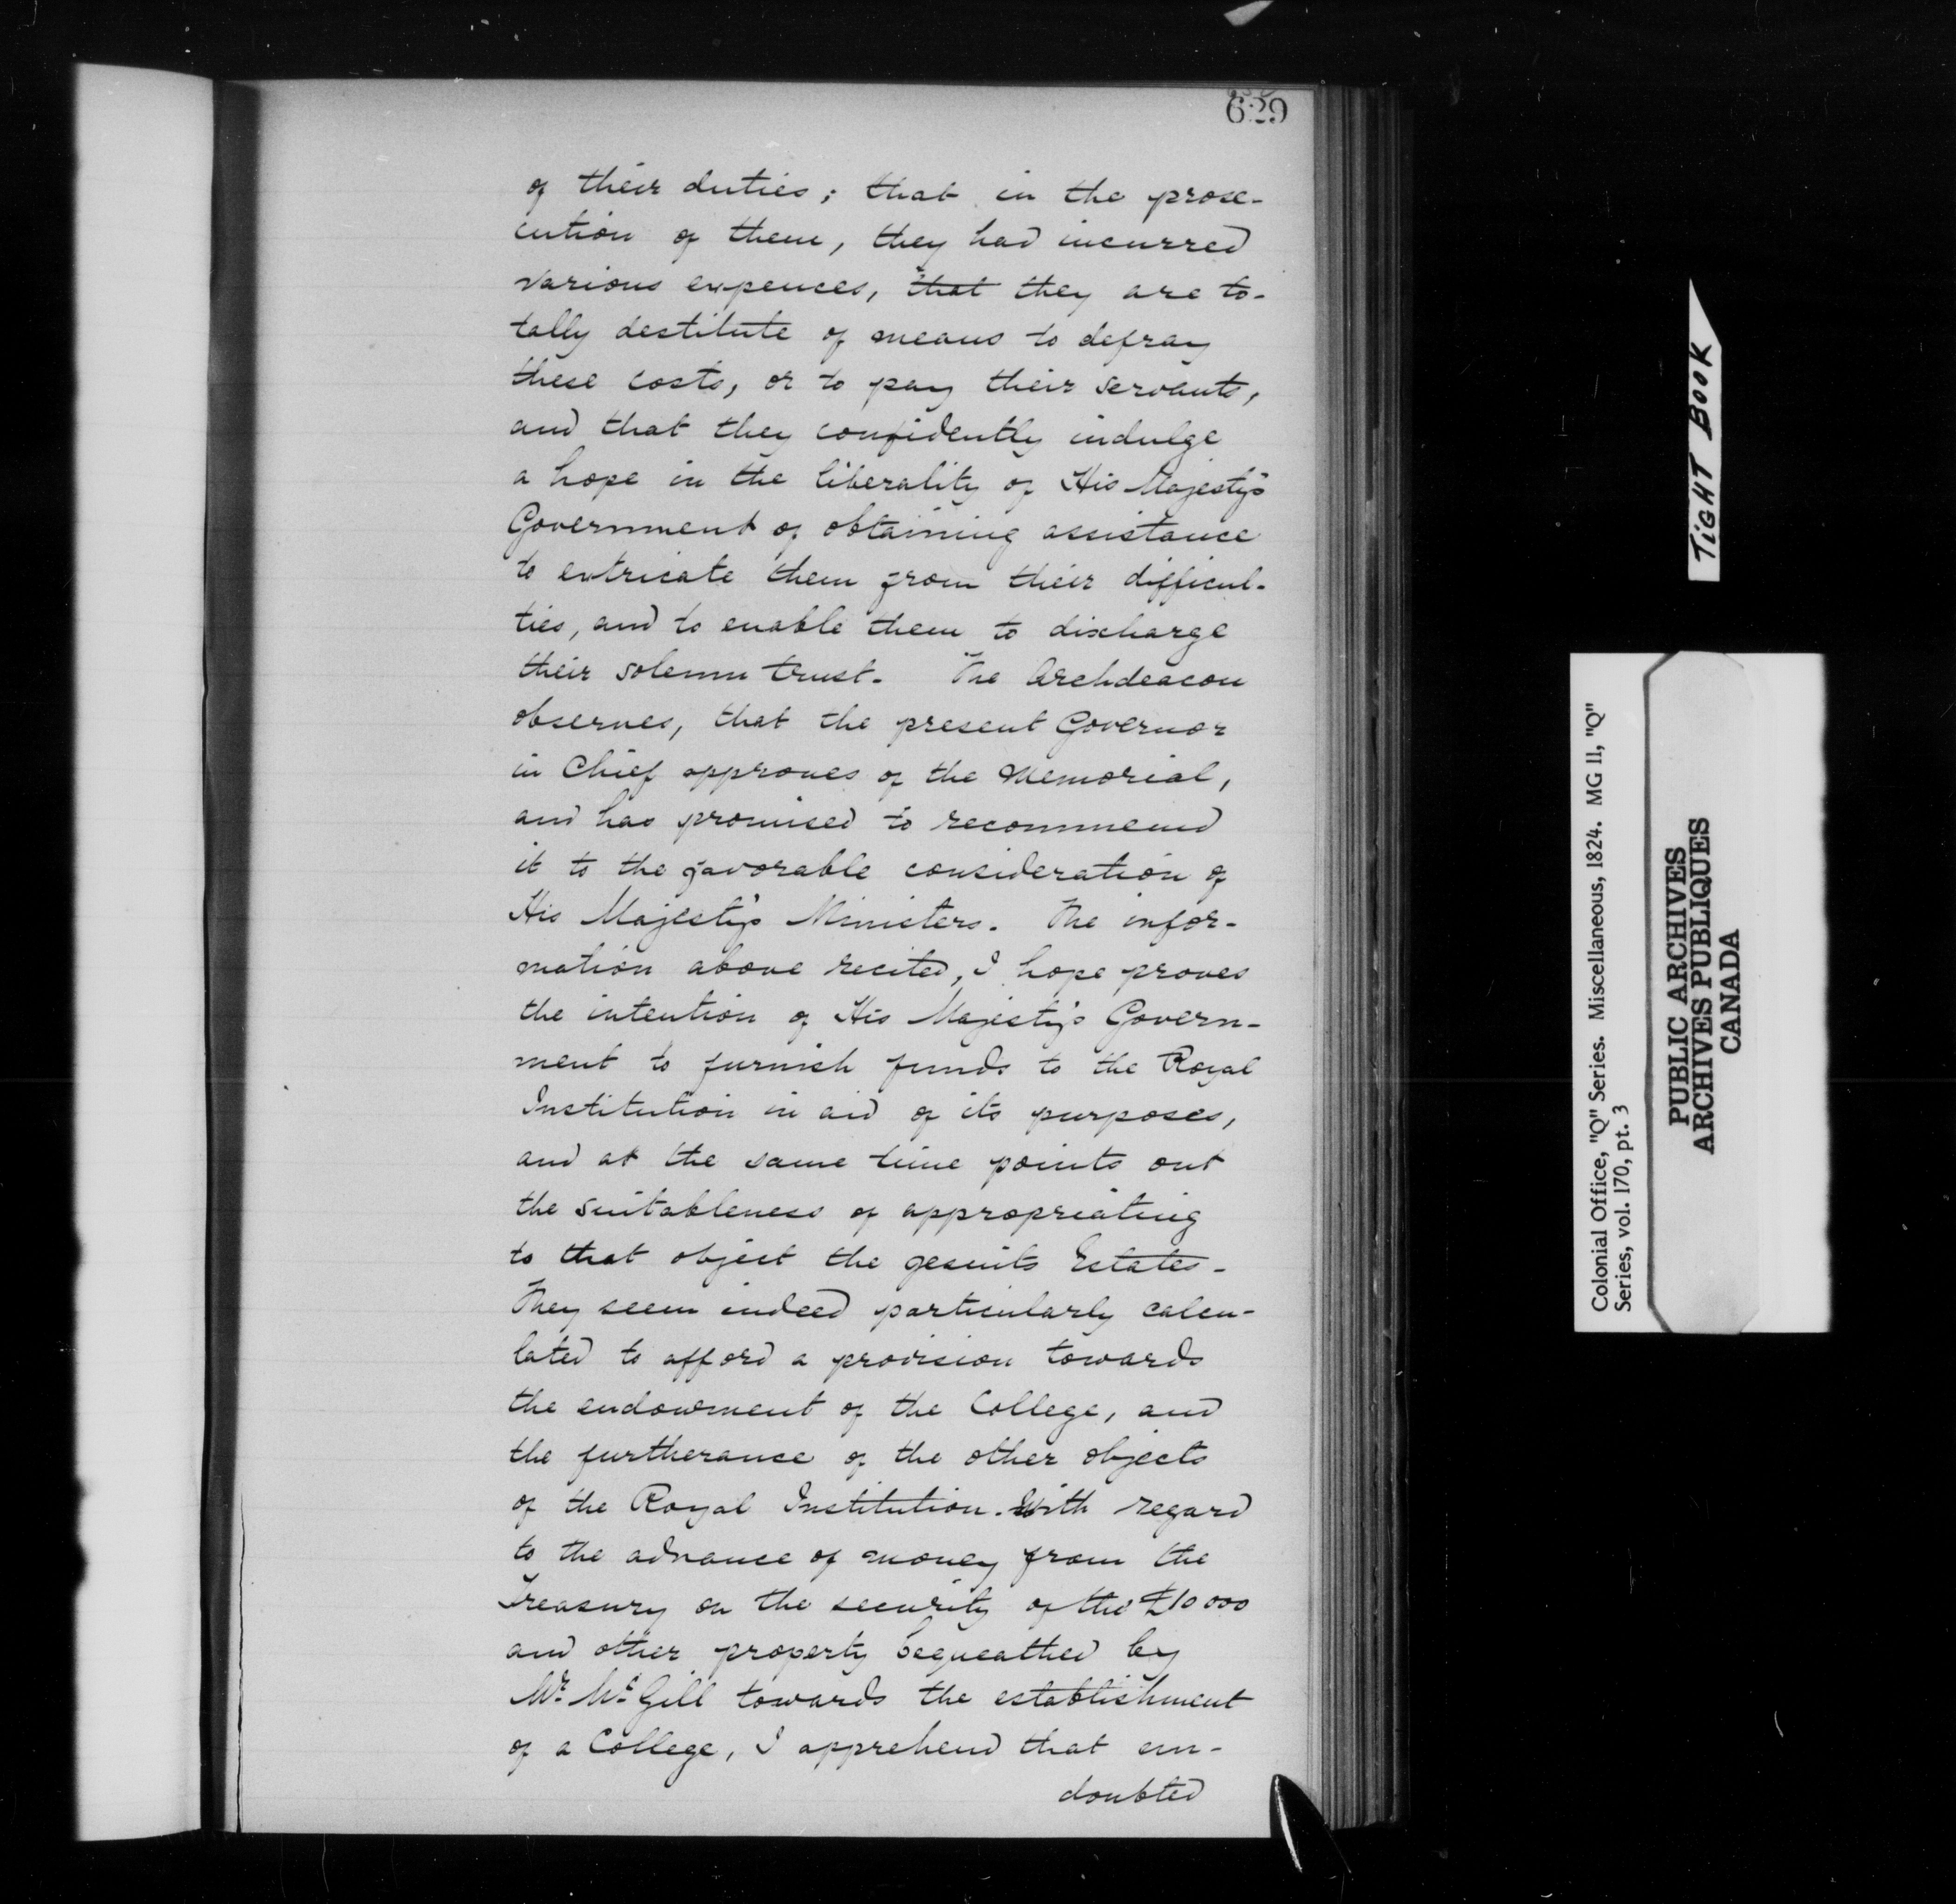 629
of their duties; that in the prose-
cution of them, they had incurred
various expences, that they are to-
tally destitute of means to defray
these costs, or to pay their servants,
and that they confidently indulge
a hope in the liberality of His Majesty's
Government of obtaining assistance
to extricate them from their difficul-
ties, and to enable them to discharge
their solemn trust. The Archdeacon
observes, that the present Governor
in Chief approves of the Memorial,
and has promised to recommend
it to the favorable consideration of
His Majesty's Ministers. The infor-
mation above recited, I hope proves
the intention of His Majesty's Govern-
ment to furnish funds to the Royal
Institution in aid of its purposes,
and at the same time points out
the suitableness of appropriating
to that object the jesuits Estates.
They seem indeed particularly calcu-
lated to afford a provision towards
the endowment of the College, and
the furtherance of the other objects
of the Royal Institution. With regard
to the advance of money from the
Treasury on the security of the £10000
and other property bequeathed by
Mr. McGill towards the establishment
of a College, I apprehend that un-
doubted
TIGHT BOOK
Colonial Office, "Q" Series. Miscellaneous, 1824. MG 11, "Q"
Series, vol. 170, pt. 3
PUBLIC ARCHIVES
ARCHIVES PUBLIQUES
CANADA